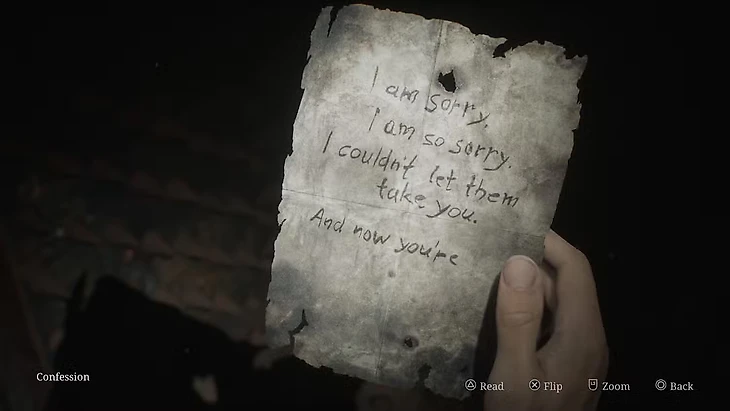 I am sorry.
I am so sorry.
I couldn't let them
take you.
And now you're
Confession
Read Flip Zoom Back